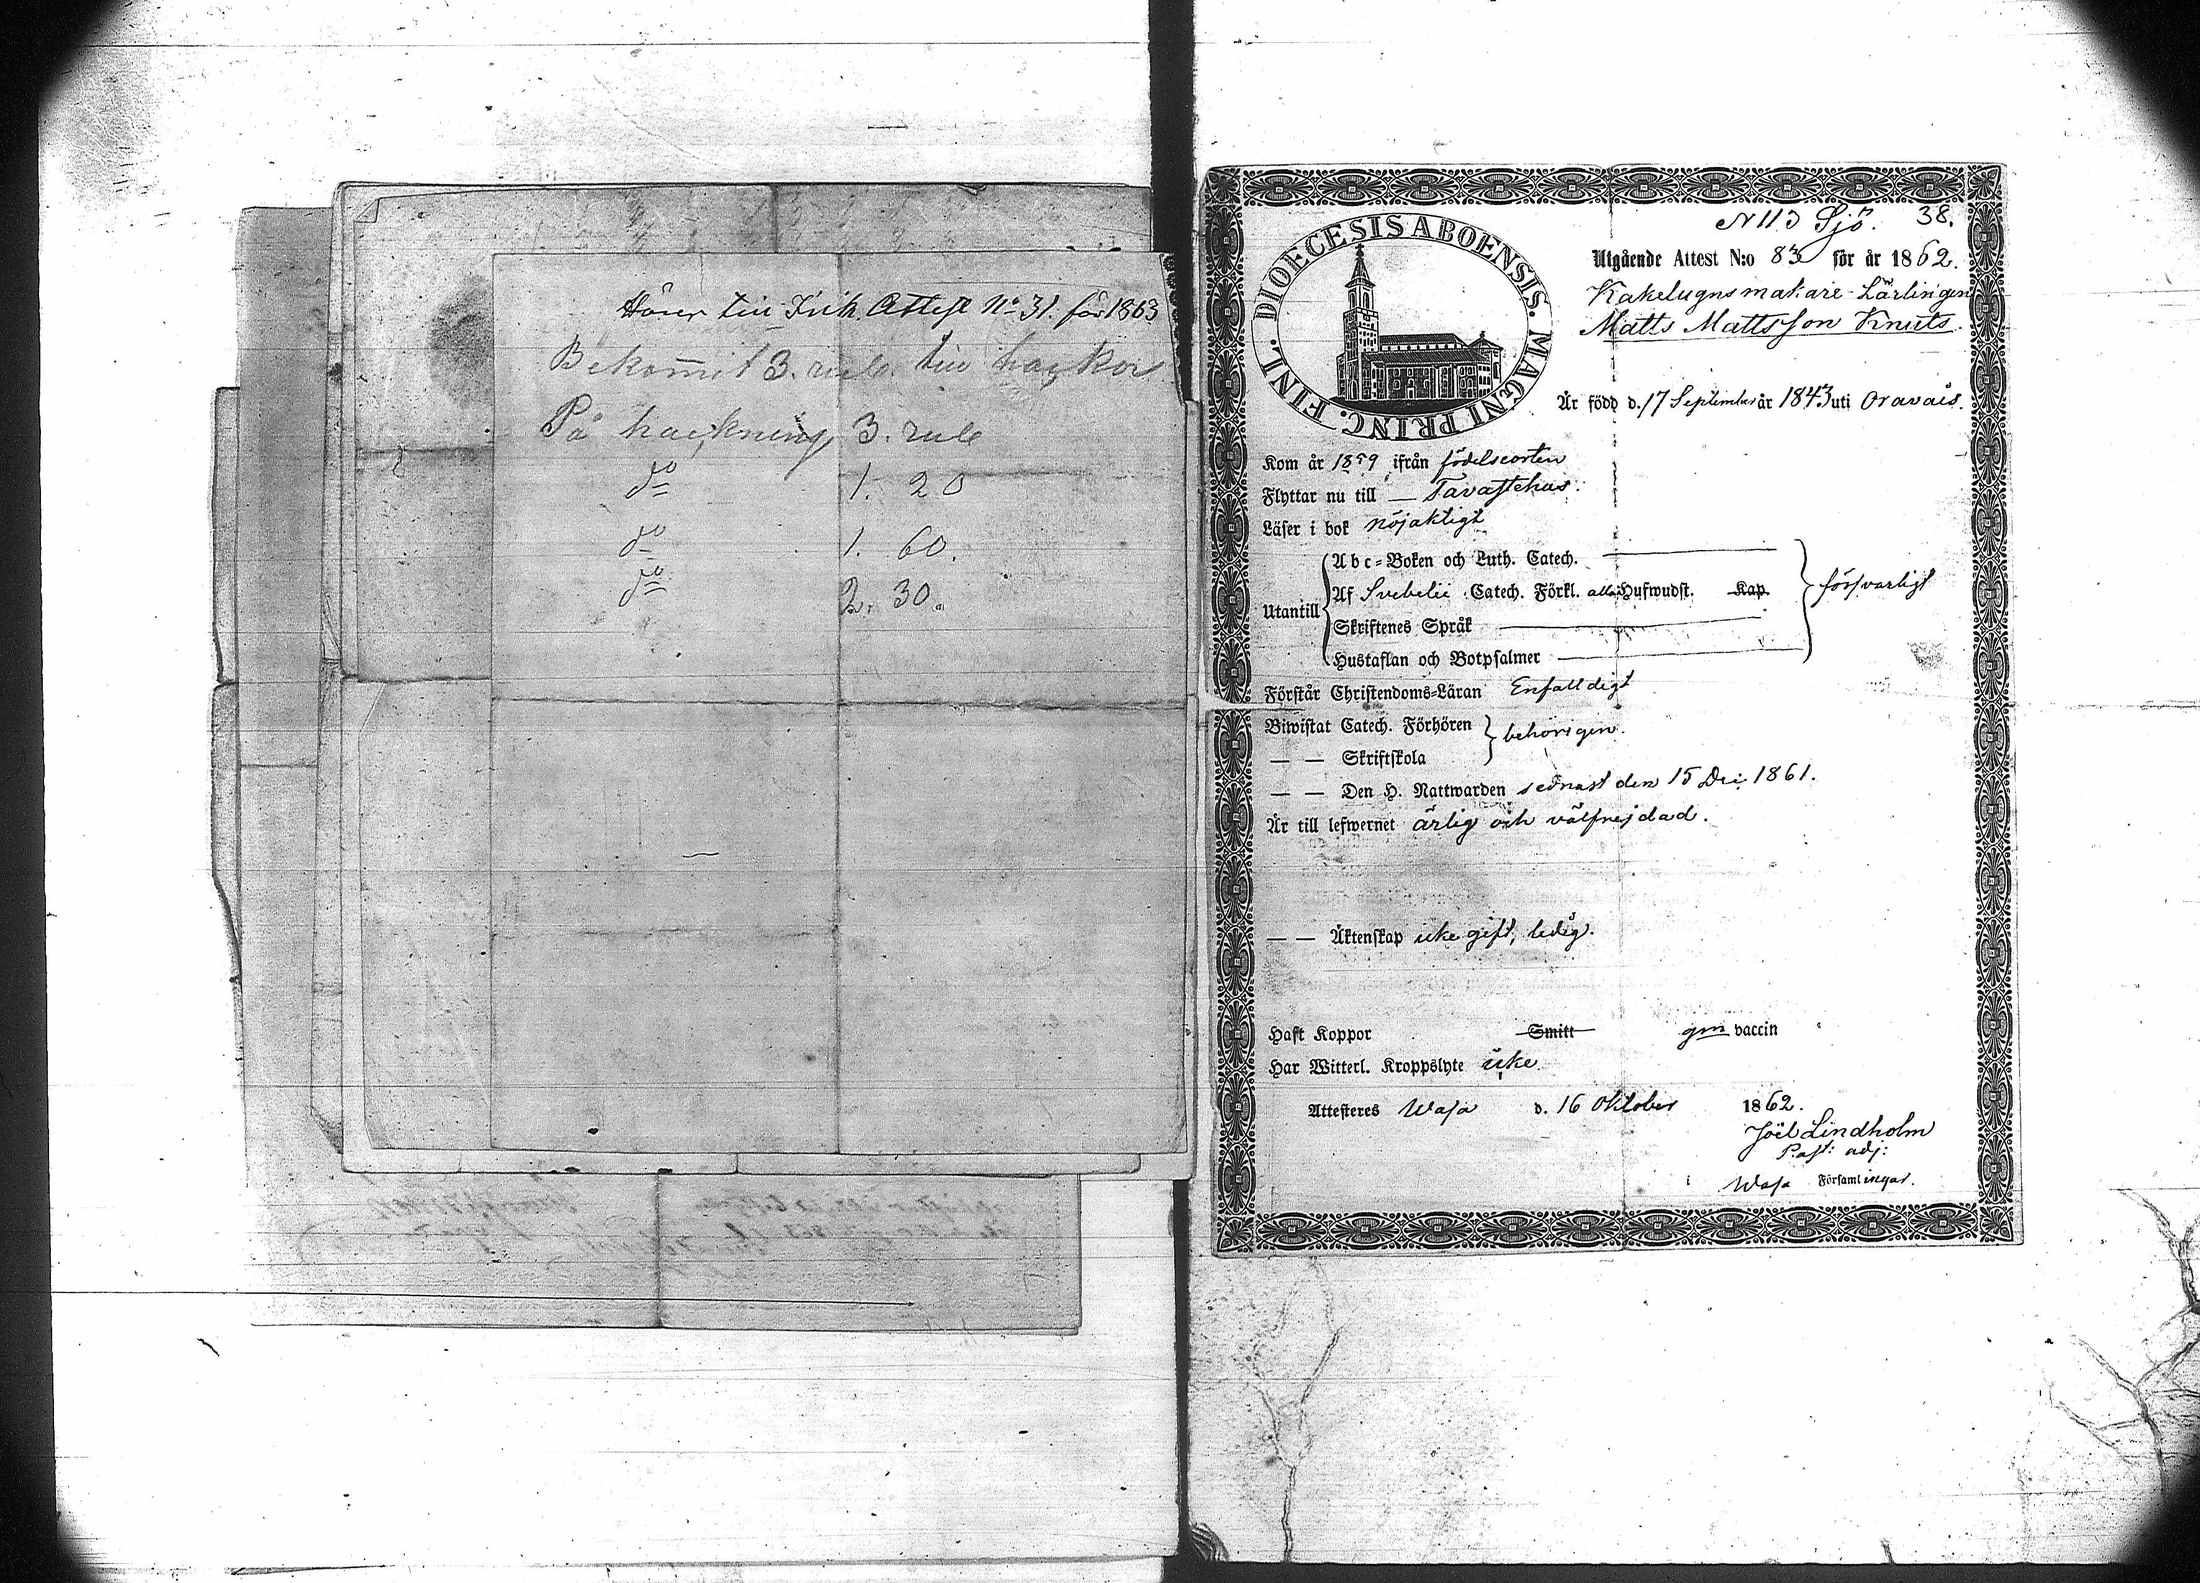 Hörer till Ink. Attest No 31. för 1863
Bekommit 3. rubl. till hackor
På hackning 3. rubl
do 1. 20
do 1. 60.
do 2. 30.
N 113 Sjö. 38.
DIOECESIS ABOENSIS. MAGNI PRINC. FINL.
Utgående Attest N:o 83 för år 1862.
Kakelugnsmakare-Lärlingen
Matts Mattsson Knuts
Är född d. 17 September år 1843 uti Oravais.
Kom år 1859 ifrån födelseorten
Flyttar nu till — Tavastehus.
Läser i bok nöjaktigt
Abc-Boken och Luth. Catech.
Utantill Af Svebelii Catech. Förkl. alla Hufwudst. Kap. försvarligt
Skriftenes Språk
Hustaflan och Botpsalmer
Förstår Christendoms-Läran Enfalldigt
Biwistat Catech. Förhören behörigen.
— — Skriftskola
— — Den H. Nattwarden sednast den 15 Dec. 1861.
Är till lefwernet ärlig och välfrejdad.
— — Äktenskap icke gift, ledig.
Haft Koppor Smitt gm vaccin
Har Witterl. Kroppslyte icke
Attesteres Wasa d. 16 Oktober 1862.
Joël Lindholm
Past: adj:
i Wasa Församlingar.